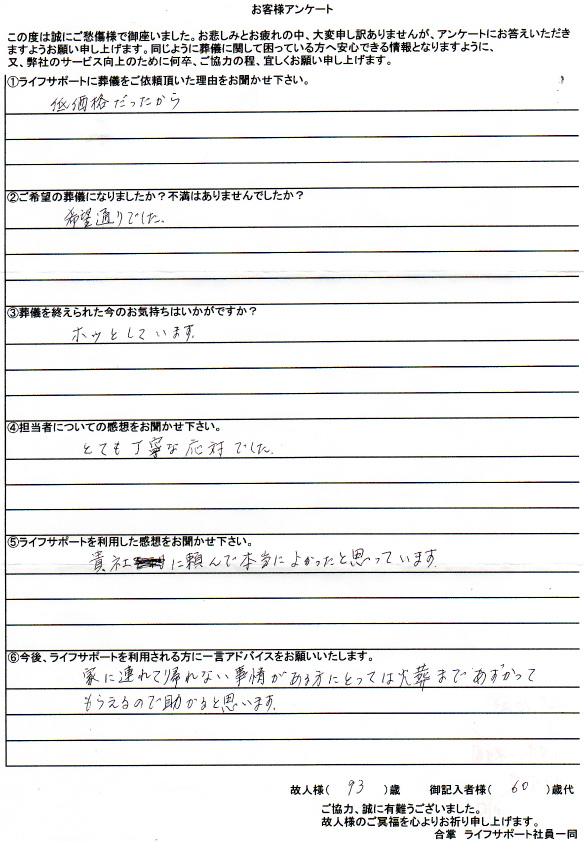 お客様アンケート
この度は誠にご愁傷様で御座いました。お悲しみとお疲れの中、大変申し訳ありませんが、アンケートにお答えいただき
ますようお願い申し上げます。同じように葬儀に関して困っている方へ安心できる情報となりますように、
又、弊社のサービス向上のために何卒、ご協力の程、宜しくお願い申し上げます。
①ライフサポートに葬儀をご依頼頂いた理由をお聞かせ下さい。
低価格だったから
②ご希望の葬儀になりましたか？不満はありませんでしたか？
希望通りでした.
③葬儀を終えられた今のお気持ちはいかがですか？
ホッとしています.
④担当者についての感想をお聞かせ下さい。
とても丁寧な応対でした.
⑤ライフサポートを利用した感想をお聞かせ下さい。
貴社に頼んで本当によかったと思っています.
⑥今後、ライフサポートを利用される方に一言アドバイスをお願いいたします。
家に連れて帰れない事情がある方にとっては火葬まであずかって
もらえるので助かると思います.
故人様( 93 )歳 御記入者様( 60 )歳代
ご協力、誠に有難うございました。
故人様のご冥福を心よりお祈り申し上げます。
合掌 ライフサポート社員一同